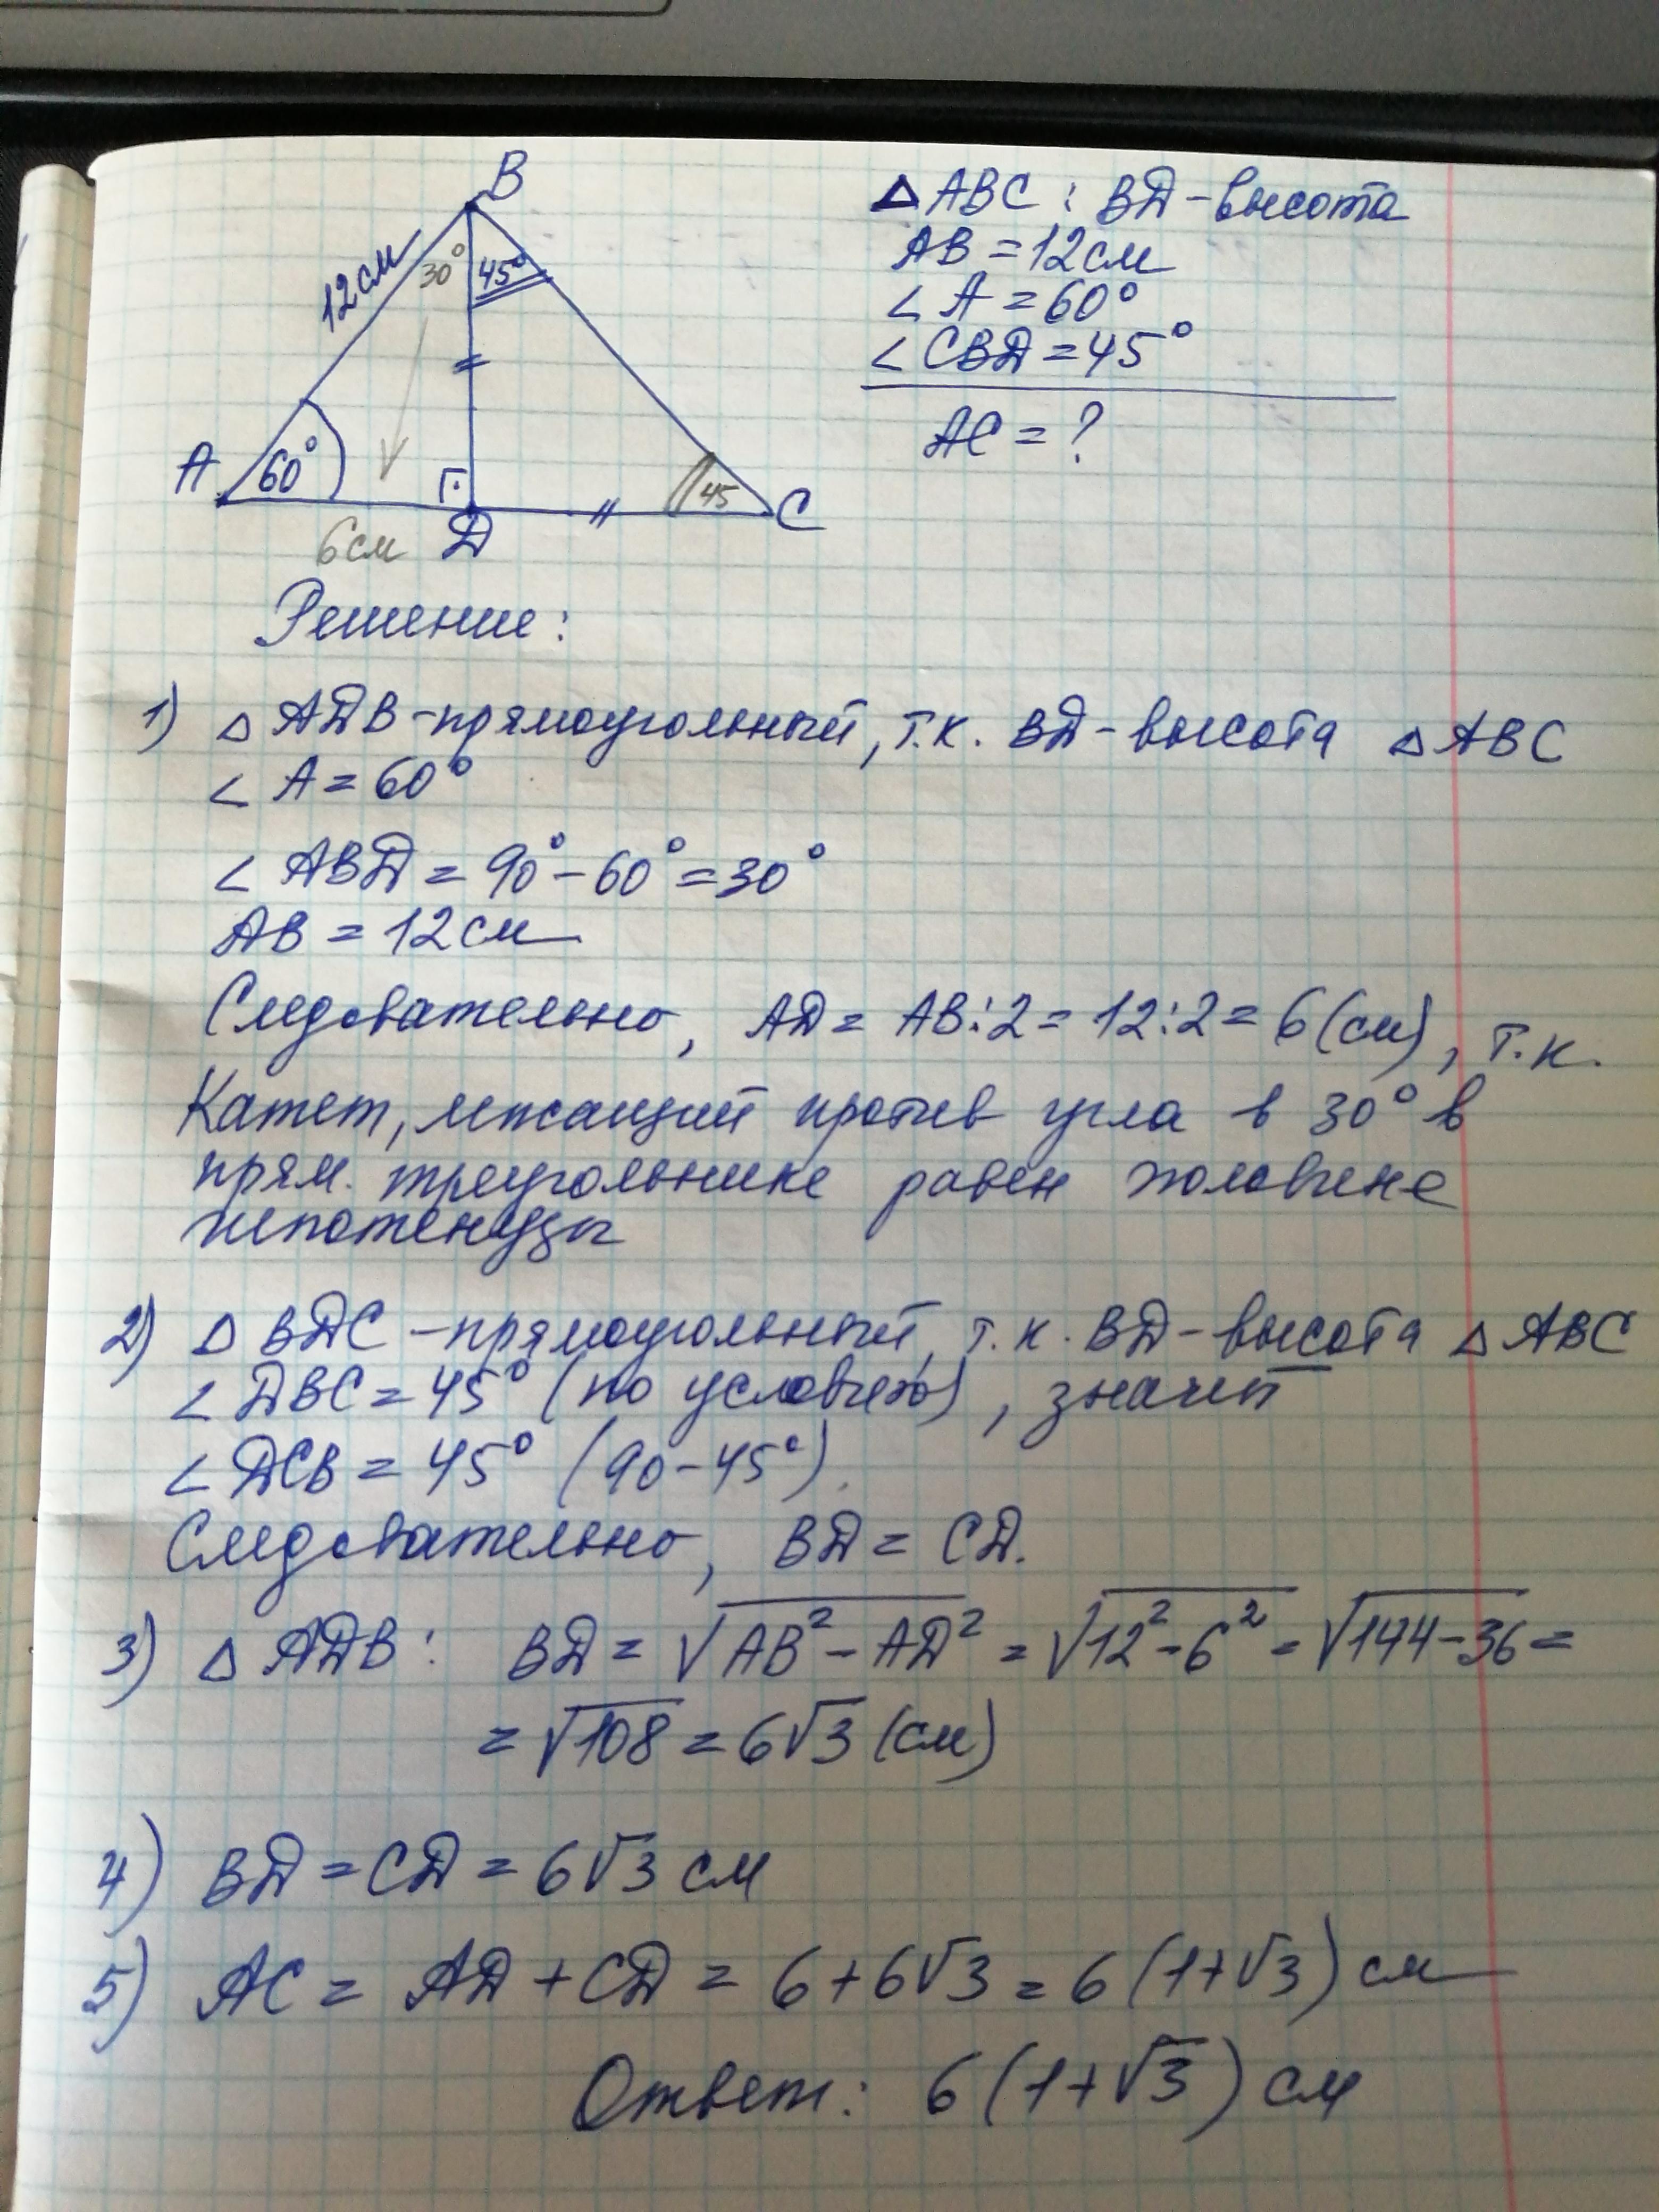 B
12см
30°
45°
A
60°
45
C
6см
D
△ABC : BD - высота
AB = 12см
∠A = 60°
∠CBD = 45°
AC = ?
Решение:
1) △ ADB - прямоугольный, т.к. BD - высота △ABC
∠ A = 60°
∠ ABD = 90° - 60° = 30°
AB = 12см
Следовательно, AD = AB:2 = 12:2 = 6(см), т.к.
Катет, лежащий против угла в 30° в
прям. треугольнике равен половине
гипотенузы
2) △ BDC - прямоугольный, т.к. BD - высота △ ABC
∠ DBC = 45° (по условию), значит
∠ DCB = 45° (90 - 45°).
Следовательно, BD = CD.
3) △ ADB: BD = √AB² - AD² = √12² - 6² = √144 - 36 =
= √108 = 6√3 (см)
4) BD = CD = 6√3 см
5) AC = AD + CD = 6 + 6√3 = 6(1+√3) см
Ответ: 6(1+√3) см